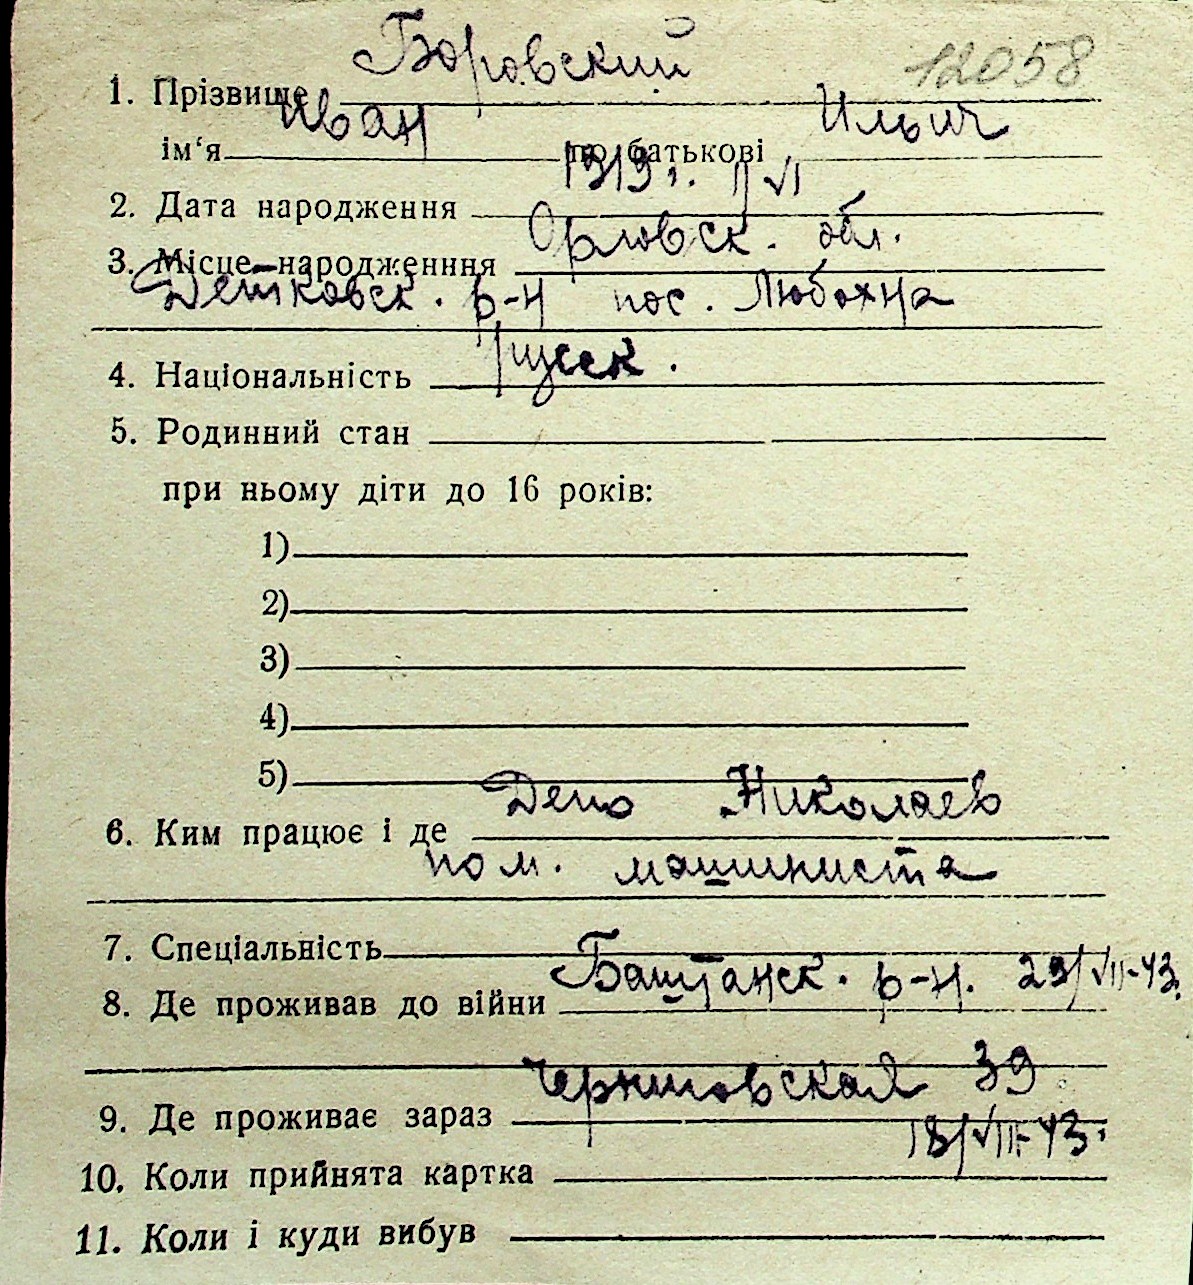 12058
1. Прізвище Боровский
ім‘я Иван по батькові Ильич
2. Дата народження 1919 г. 11 VI
3. Місце народженння Орловск. обл.
Детковск. р-н пос. Любохна
4. Національність русск.
5. Родинний стан
при ньому діти до 16 років:
1)
2)
3)
4)
5)
6. Ким працює і де Депо Николаев
пом. машиниста
7. Спеціальність
8. Де проживав до війни Баштанск. р-н. 29/VII-43.
9. Де проживає зараз Черниговская 39
10. Коли прийнята картка 18/VII-43.
11. Коли і куди вибув